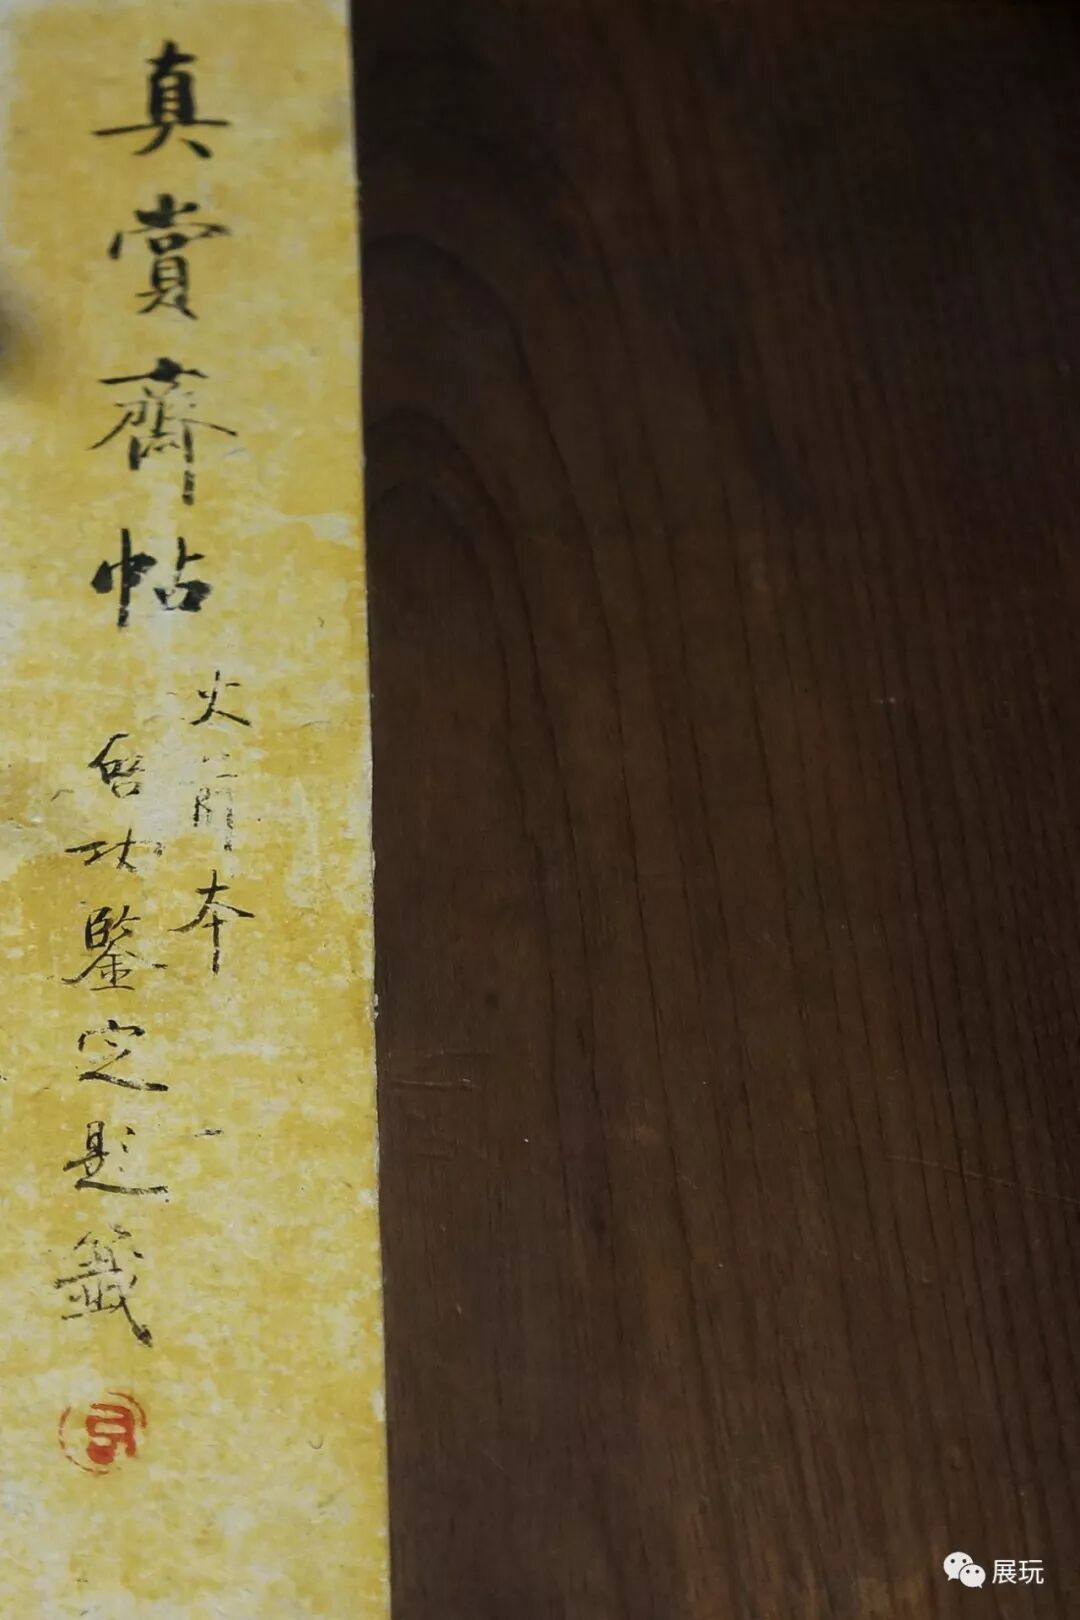 真賞齋帖
火前本
启功鑒定題籤
展玩